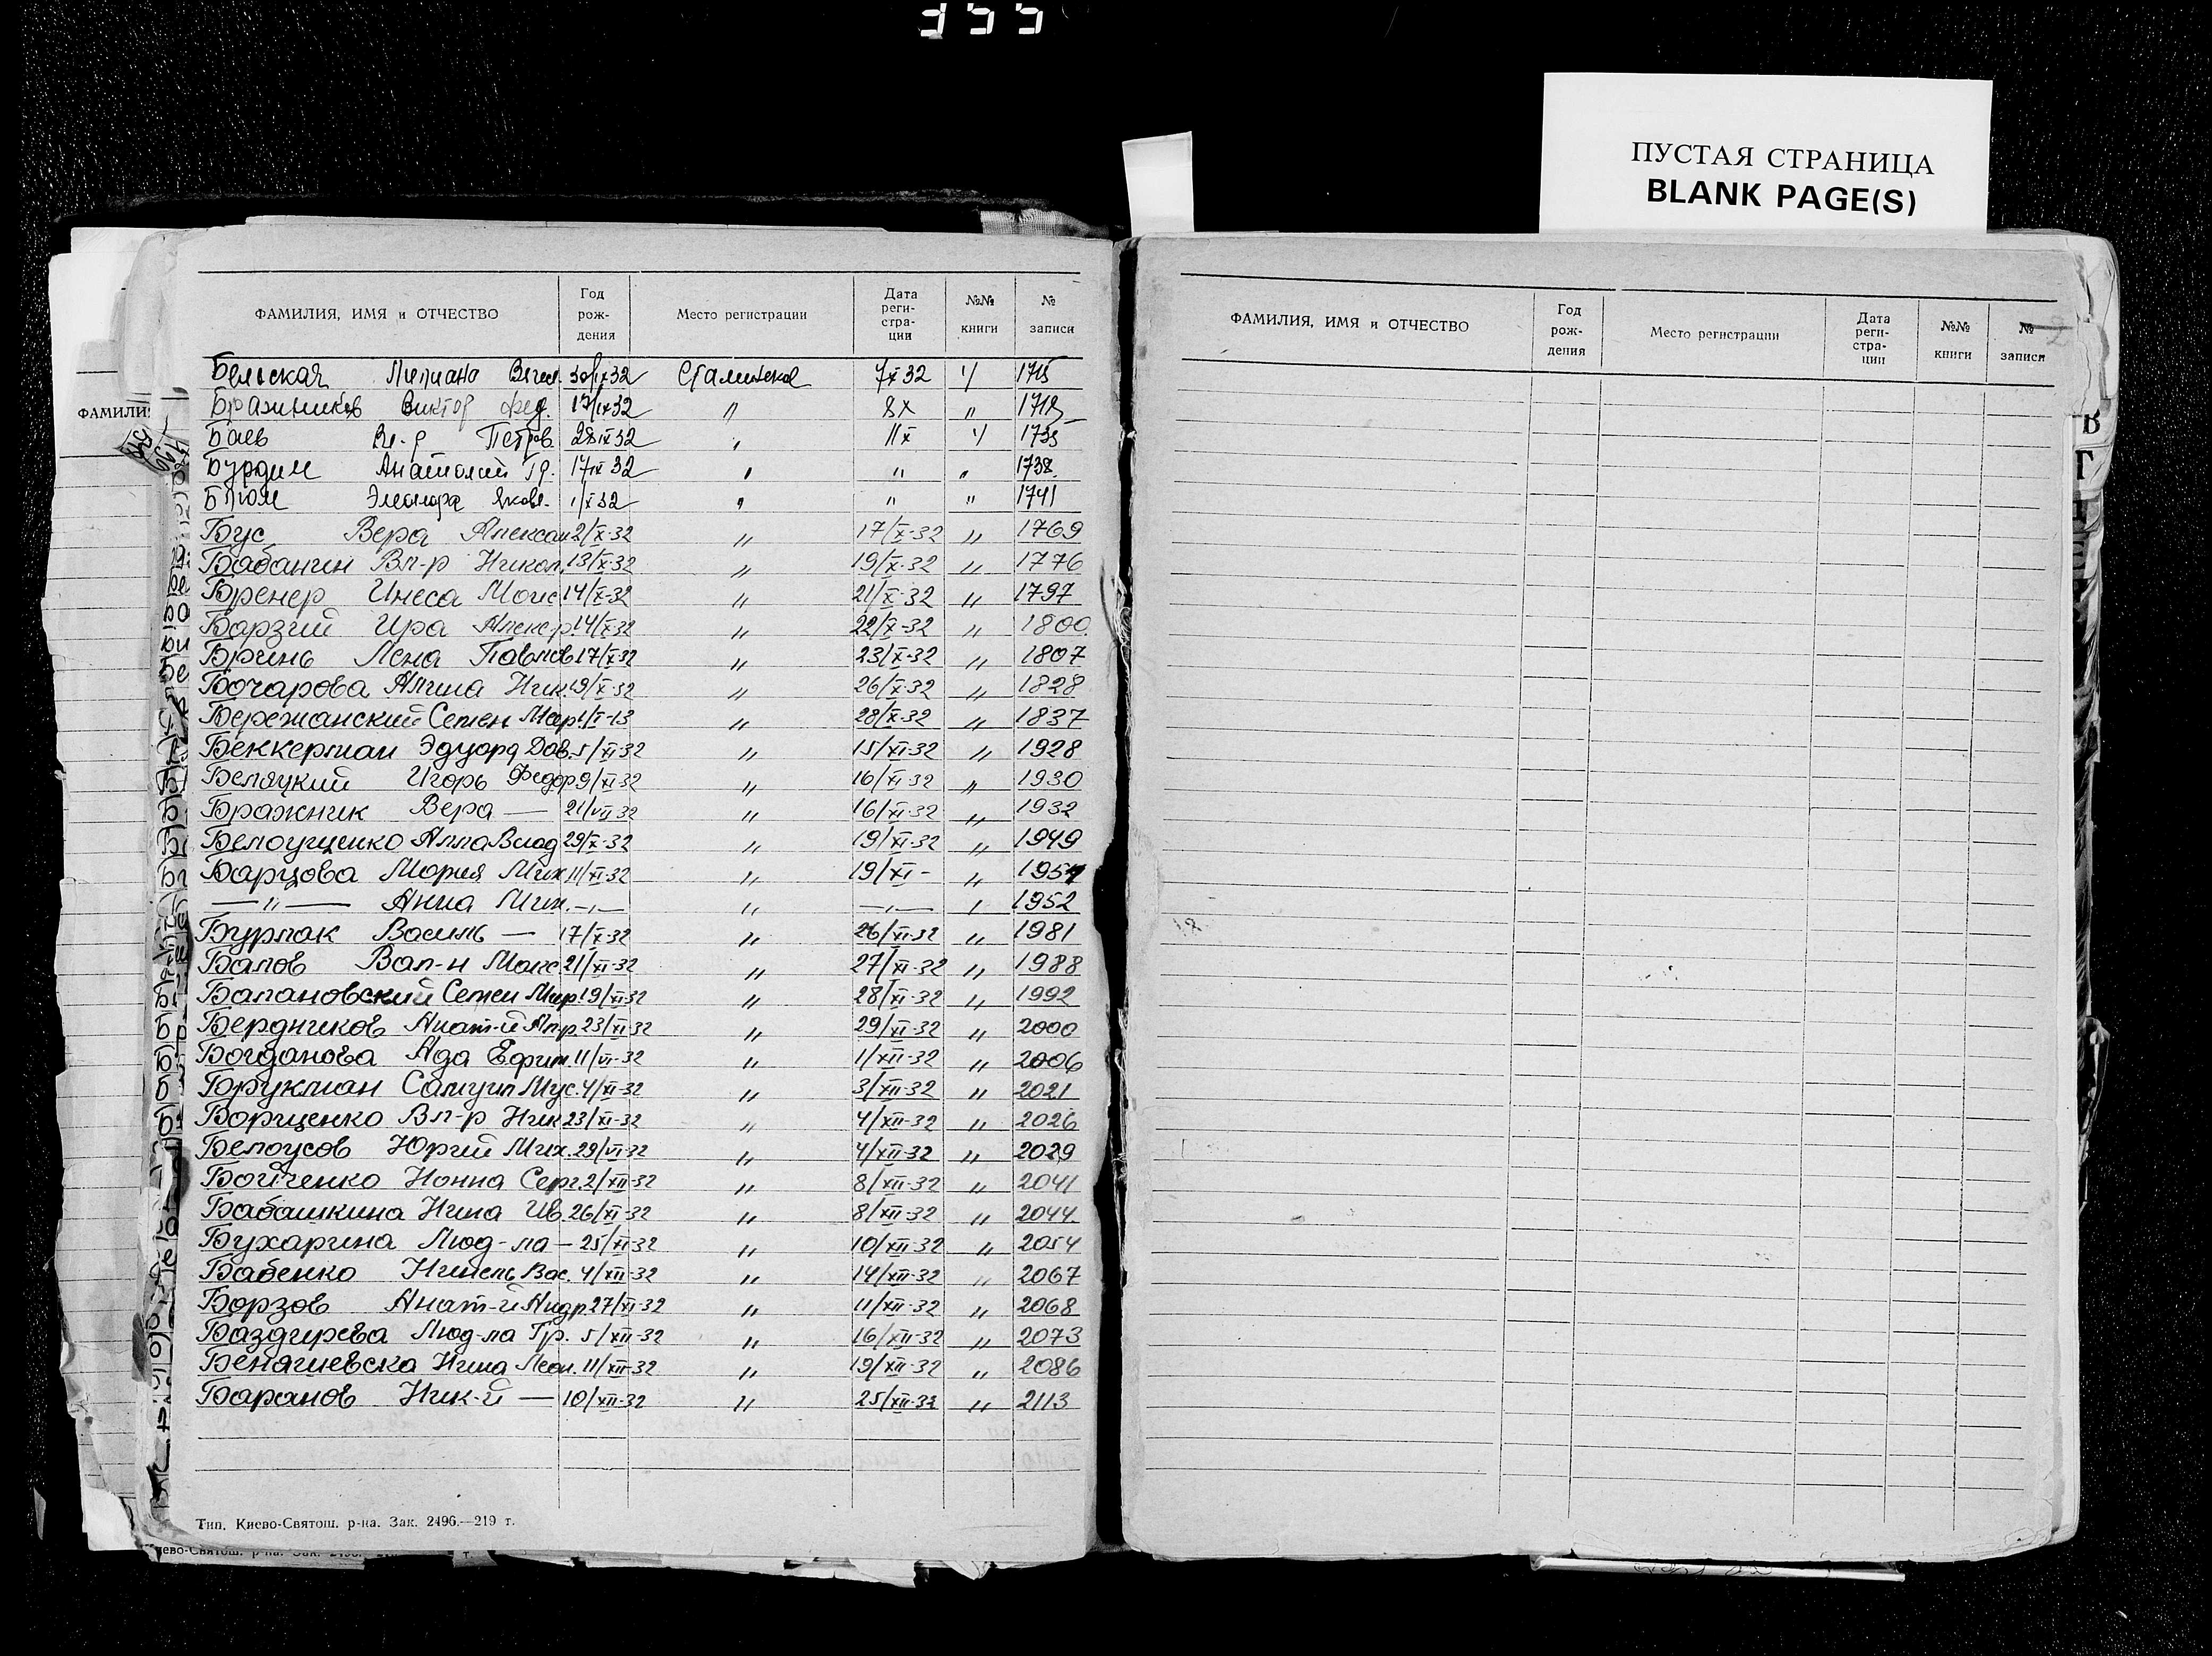 355
ПУСТАЯ СТРАНИЦА
BLANK PAGE(S)
ФАМИЛИЯ, ИМЯ и ОТЧЕСТВО Год рож- дения Место регистрации Дата реги- стра- ции №№ книги № записи
Бельская Лилиана 30/IX 32 Сталинское 7X 32 1715
Бражников Виктор Фед. 17/IX 32 " 8X " 1718
Баев Вл-р Петров. 28 IX 32 " 11X 1735
Бурдин Анатолий Гр. 17 IX 32 " " " 1738
Блюм Элеонора Яковл. 1/X 32 " " " 1741
Бус Вера Алексан 2/X-32 " 17/X-32 " 1769
Бабанин Вл-р Никол. 13/X-32 " 19/X-32 " 1776
Бренер Инеса Моис 14/X-32 " 21/X-32 " 1797
Барзий Ира Алек-р. 14/X-32 " 22/X-32 " 1800
Бринь Лена Павлов. 17/X-32 " 23/X-32 " 1807
Бочарова Алина Ник. 19/X-32 " 26/X-32 " 1828
Бережанский Семен Мар. 1/I-13 " 28/X-32 " 1837
Беккерман Эдуард Дав. 5/XI-32 " 15/XI-32 " 1928
Беляцкий Игорь Федор 9/XI-32 " 16/XI-32 " 1930
Бражник Вера — 21/VII-32 " 16/XI-32 " 1932
Белоущенко Алла Влад 29/X-32 " 19/XI-32 " 1949
Барцова Мария Мих 11/XI-32 " 19/XI - " 1951
—"— Анна Мих. —"— " —"— " 1952
Бурлак Василь — 17/X-32 " 26/XI-32 " 1981
Балов Вал-н Макс. 21/XI-32 " 27/XI-32 " 1988
Балановский Семен Мир. 19/XI-32 " 28/XI-32 " 1992
Бердников Анат-й Ал-р. 23/XI-32 " 29/XI-32 " 2000
Богданова Ада Ефим. 11/VI-32 " 1/XII-32 " 2006
Брукман Самуил Мус. 4/XI-32 " 3/XII-32 " 2021
Борщенко Вл-р Ник 23/XI-32 " 4/XII-32 " 2026
Белоусов Юрий Мих. 29/VI-32 " 4/XII-32 " 2029
Бойченко Нонна Серг. 2/XII-32 " 8/XII-32 " 2041
Бабашкина Нина Ив. 26/XI-32 " 8/XII-32 " 2044
Бухарина Люд-ла — 25/XI-32 " 10/XII-32 " 2054
Бабенко Нинель Вас. 4/XII-32 " 14/XII-32 " 2067
Борзов Анат-й Андр. 27/XI-32 " 11/XII-32 " 2068
Баздирева Люд-ла Гр. 5/XII-32 " 16/XII-32 " 2073
Бенягиевска Нина Леон. 11/XII-32 " 19/XII-32 " 2086
Баранов Ник-й — 10/XII-32 " 25/XII-32 " 2113
Тип. Киево-Святош. р-на. Зак. 2496.—219 т.
ФАМИЛИЯ, ИМЯ и ОТЧЕСТВО Год рож- дения Место регистрации Дата реги- стра- ции №№ книги № записи